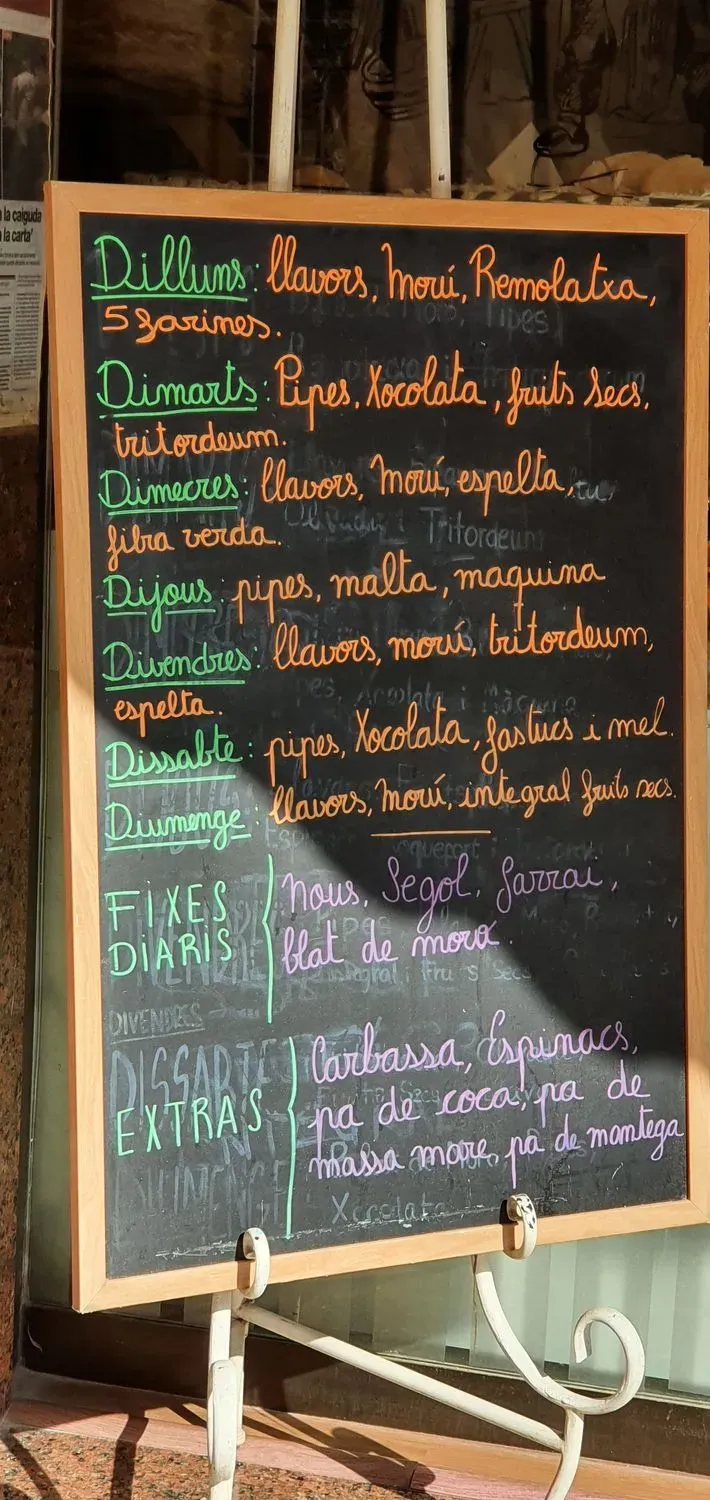 a la calguda
la carta'
Dilluns: llavors, Moruí, Remolatxa,
5 farines.
Dimarts: Pipes, Xocolata, fruits secs,
tritordeum.
Dimecres: llavors, Moruí, espelta,
fibra verda.
Dijous: pipes, malta, maquina
Divendres: llavors, moruí, tritordeum,
espelta.
Dissabte: pipes, Xocolata, fastucs i mel.
Diumenge: llavors, Moruí, integral fruits secs.
FIXES DIARIS
Nous, Segol, farrai,
blat de moro.
DIVENDRES
DISSABTE
EXTRAS
Carbassa, Espinacs,
pa de coca, pa de
massa mare, pa de mantega
Xocolata